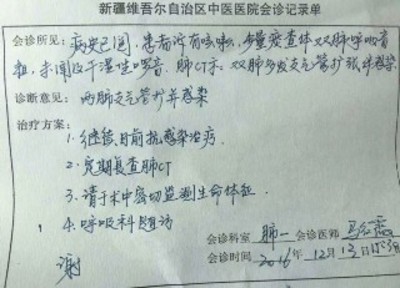 新疆维吾尔自治区中医医院会诊记录单
会诊所见：病史已阅，患者诉有咳嗽，少量痰查体双肺呼吸音
粗，未闻及干湿啰音。肺CT示：双肺多发支气管扩张伴感染
诊断意见：两肺支气管扩张并感染
治疗方案：
1.继续目前抗感染治疗
2.定期复查肺CT
3.请于术中密切监测生命体征
4.呼吸科随访
谢
会诊科室 肺一 会诊医师 马红霞
会诊时间 2016年 12月 13日